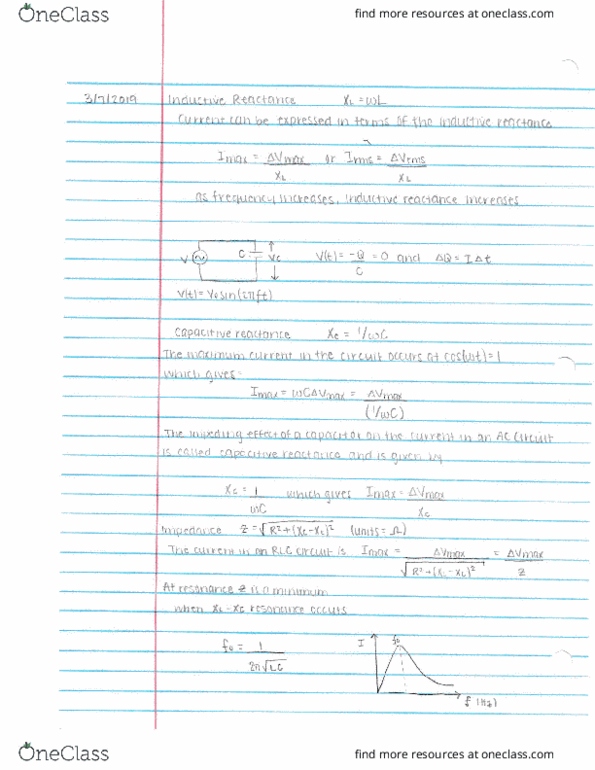 OneClass
find more resources at oneclass.com
3/7/2019 Inductive Reactance X_L = ωL
Current can be expressed in terms of the inductive reactance
Imax = ΔVmax / X_L or Irms = ΔVrms / X_L
as frequency increases, inductive reactance increases
V C Vc V(t) = -Q/C = 0 and ΔQ = IΔt
V(t) = V0 sin(2πft)
Capacitive reactance Xc = 1/ωC
The maximum current in the circuit occurs at cos(ωt) = 1
which gives:
Imax = ωCΔVmax = ΔVmax / (1/ωC)
The impeding effect of a capacitor on the current in an AC circuit
is called capacitive reactance and is given by
Xc = 1/ωC which gives Imax = ΔVmax / Xc
Impedance Z = √R²+(X_L-Xc)² (units = Ω)
The current in an RLC circuit is Imax = ΔVmax / √R²+(X_L-Xc)² = ΔVmax / Z
At resonance Z is a minimum
when X_L-Xc resonance occurs
f0 = 1 / 2π√LC I f0
f (Hz)
OneClass
find more resources at oneclass.com